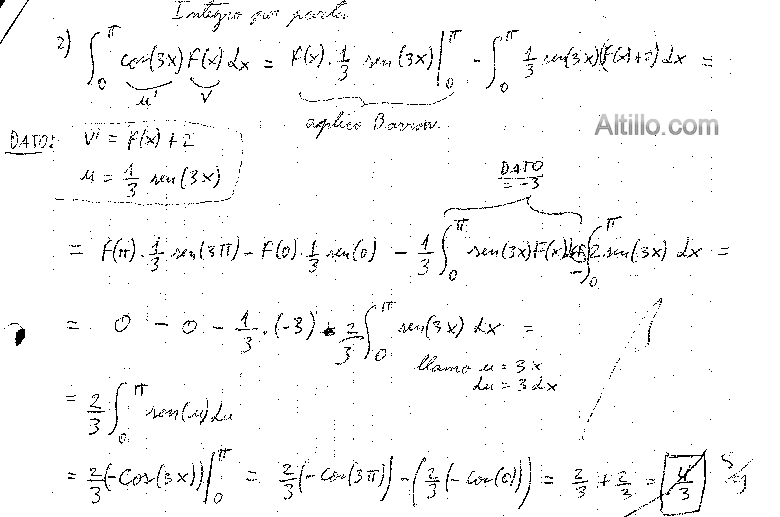 Integro por partes
2) ∫₀^π cos(3x) F(x) dx = F(x)·1/3 sen(3x)|₀^π - ∫₀^π 1/3 sen(3x)(F(x)+2) dx =
u' v
aplico Barrow.
Altillo.com
DATO: v' = F(x)+2
u = 1/3 sen(3x)
DATO = -3
= F(π)·1/3 sen(3π) - F(0)·1/3 sen(0) - 1/3 ∫₀^π sen(3x)F(x) ∫₀^π 2 sen(3x) dx =
= 0 - 0 - 1/3·(-3) - 2/3 ∫₀^π sen(3x) dx =
llamo u = 3x
du = 3dx
= 2/3 ∫₀^π sen(u) du
= 2/3 (-cos(3x))|₀^π = 2/3 (-cos(3π)) - (2/3 (-cos(0))) = 2/3 + 2/3 = 4/3